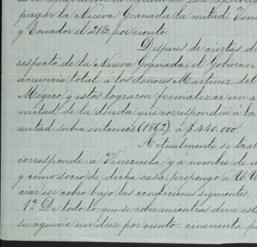 pagar la Nueva Granada la mitad Vene
y Ecuador el 21½ por ciento.
Despues de ciertas
respecto de la Nueva Granada, el Gobern
total á los Señores Martinez del
Megico, y estos lograron formalizar un a
mitad de la deuda que correspondia á la
mitad subia entonces (1862) á $440.000
Actualmente se trat
corresponde á Venezuela, y á nombre de e
y como socio de dicha casa propongo á U.U.
ciar ese cobro bajo las condiciones siguientes.
1ª De todo lo que se cobre mientras dure est
su agencia un diez por ciento. cincuenta p